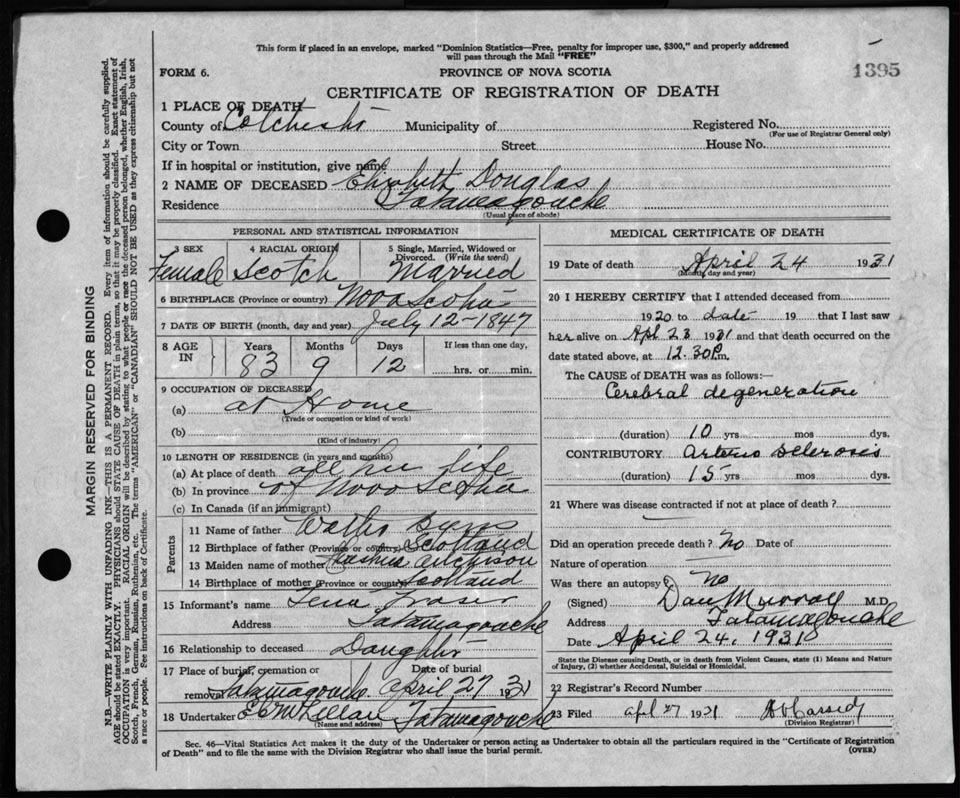 This form if placed in an envelope, marked "Dominion Statistics—Free, penalty for improper use, $300," and properly addressed
will pass through the Mail "FREE"
FORM 6.
PROVINCE OF NOVA SCOTIA
1395
CERTIFICATE OF REGISTRATION OF DEATH
1 PLACE OF DEATH
County of Colchester Municipality of Registered No.
(For use of Registrar General only)
City or Town Street House No.
If in hospital or institution, give name
2 NAME OF DECEASED Elizabeth Douglas
Residence Tatamagouche
(Usual place of abode)
PERSONAL AND STATISTICAL INFORMATION
3 SEX 4 RACIAL ORIGIN 5 Single, Married, Widowed or
Divorced. (Write the word)
Female Scotch Married
6 BIRTHPLACE (Province or country) Nova Scotia
7 DATE OF BIRTH (month, day and year) July 12-1847
8 AGE IN Years Months Days If less than one day,
83 9 12 hrs. or min.
9 OCCUPATION OF DECEASED
(a) at Home
(Trade or occupation or kind of work)
(b)
(Kind of industry)
10 LENGTH OF RESIDENCE (in years and months)
(a) At place of death all her life
(b) In province of Nova Scotia
(c) In Canada (if an immigrant)
Parents
11 Name of father
12 Birthplace of father (Province or country) Scotland
13 Maiden name of mother
14 Birthplace of mother (Province or country) Scotland
15 Informant's name Tena Fraser
Address Tatamagouche
16 Relationship to deceased Daughter
17 Place of burial, cremation or Date of burial
removal Tatamagouche April 27 1931
18 Undertaker Tatamagouche
(Name and address)
MEDICAL CERTIFICATE OF DEATH
19 Date of death April 24 1931
(Month, day and year)
20 I HEREBY CERTIFY that I attended deceased from
1920 to date 19 that I last saw
her alive on Apl 23 1931 and that death occurred on the
date stated above, at 12.30 P.m.
The CAUSE of DEATH was as follows:—
Cerebral degeneration
(duration) 10 yrs. mos. dys.
CONTRIBUTORY Arterio Sclerosis
(duration) 15 yrs. mos. dys.
21 Where was disease contracted if not at place of death?
Did an operation precede death? No Date of
Nature of operation
Was there an autopsy? No
(Signed) Dan Murray M.D.
Address Tatamagouche
Date April 24. 1931
State the Disease causing Death, or in death from Violent Causes, state (1) Means and Nature
of Injury, (2) whether Accidental, Suicidal or Homicidal.
22 Registrar's Record Number
23 Filed apl 27 1931 Cassidy
(Division Registrar)
Sec. 46—Vital Statistics Act makes it the duty of the Undertaker or person acting as Undertaker to obtain all the particulars required in the "Certificate of Registration
of Death" and to file the same with the Division Registrar who shall issue the burial permit. (OVER)
MARGIN RESERVED FOR BINDING
N.B.—WRITE PLAINLY WITH UNFADING INK—THIS IS A PERMANENT RECORD. Every item of information should be carefully supplied.
AGE should be stated EXACTLY. PHYSICIANS should STATE CAUSE OF DEATH in plain terms, so that it may be properly classified. Exact statement of
OCCUPATION is very important. RACIAL ORIGIN will be described by stating to what people or race the deceased person belonged, whether English, Irish,
Scotch, French, German, Russian, Ruthenian, etc. The terms "AMERICAN" or "CANADIAN" SHOULD NOT BE USED as they express citizenship but not
a race or people. See instructions on back of Certificate.